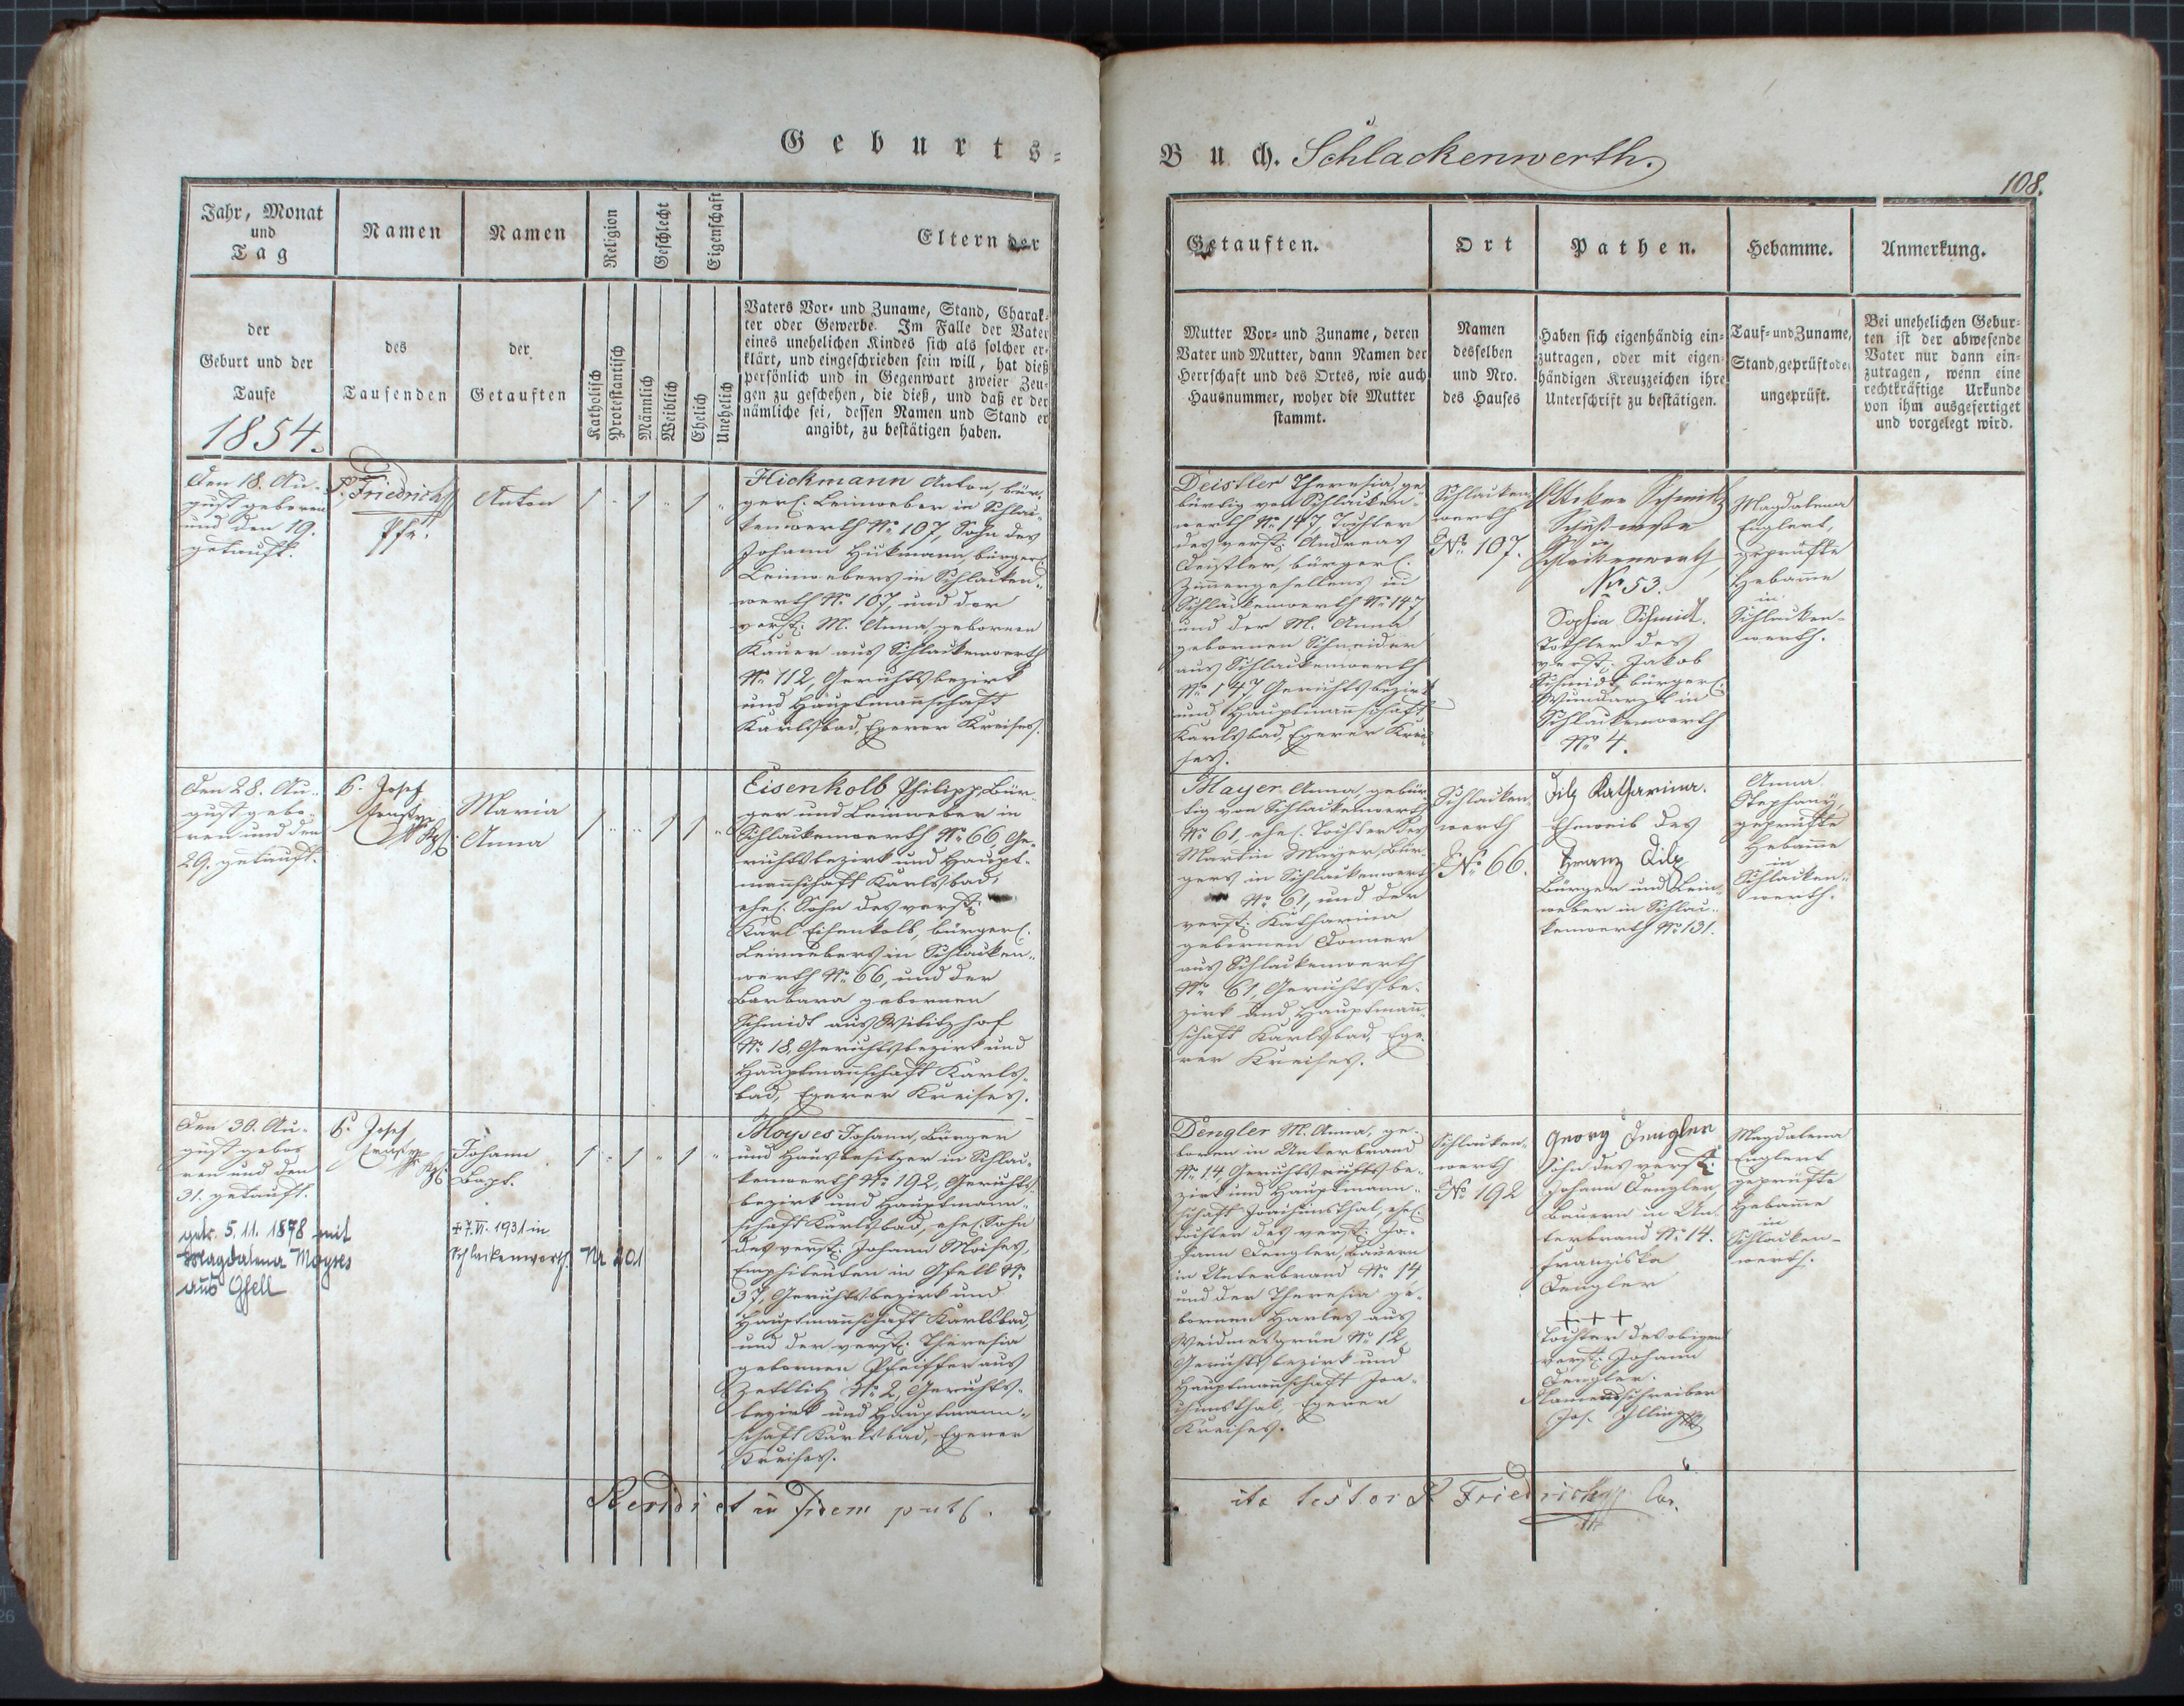 Geburts-
Buch. Schlackenwerth.
108.
Jahr, Monat
und
Tag
Namen
Namen
Religion
Geschlecht
Eigenschaft
Eltern der
der
Geburt und der
Taufe
1854.
des
Taufenden
der
Getauften
Katholisch
Protestantisch
Männlich
Weiblich
Ehelich
Unehelich
Vaters Vor- und Zuname, Stand, Charak-
ter oder Gewerbe. Im Falle der Vater
eines unehelichen Kindes sich als solcher er-
klärt, und eingeschrieben sein will, hat dieß
persönlich und in Gegenwart zweier Zeu-
gen zu geschehen, die dieß, und daß er der
nämliche sei, dessen Namen und Stand er
angibt, zu bestätigen haben.
Getauften.
Ort
Pathen.
Hebamme.
Anmerkung.
Mutter Vor- und Zuname, deren
Vater und Mutter, dann Namen der
Herrschaft und des Ortes, wie auch
Hausnummer, woher die Mutter
stammt.
Namen
desselben
und Nro.
des Hauses
Haben sich eigenhändig ein-
zutragen, oder mit eigen-
händigen Kreuzzeichen ihre
Unterschrift zu bestätigen.
Tauf- und Zuname,
Stand, geprüft oder
ungeprüft.
Bei unehelichen Gebur-
ten ist der abwesende
Vater nur dann ein-
zutragen, wenn eine
rechtkräftige Urkunde
von ihm ausgefertiget
und vorgelegt wird.
Den 18. Au-
gust geboren
und den 19.
getauft.
P. Friedrich
Pfr.
Anton
Hickmann Anton, bür-
gerl. Leinweber in Schlac-
kenwerth No 107, Sohn des
Johann Hickmann, bürgerl.
Leinwebers in Schlacken-
werth No 107, und der
verst. M. Anna gebornen
Kauer aus Schlackenwerth
No 112, Gerichtsbezirk
und Hauptmannschaft
Karlsbad, Egerer Kreises.
Deistler Theresia, ge-
bürtig von Schlacken-
werth No 147, Tochter
des verst. Andreas
Deistler, bürgerl.
Zimmergesellens in
Schlackenwerth No 147
und der M. Anna
gebornen Schneider
aus Schlackenwerth
No 147 Gerichtsbezirk
und Hauptmannschaft
Karlsbad, Egerer Krei-
ses.
Schlacken-
werth
No 107.
Schmidt
in
Schlackenwerth,
No 53.
Sophia Schmidt.
Tochter des
verst. Jakob
Schmidt bürgerl.
Wundarzt in
Schlackenwerth
No 4.
Magdalena
Englert,
geprüfte
Hebamme
in
Schlacken-
werth.
Den 28. Au-
gust gebo-
ren und den
29. getauft.
P. Josef
Maria
Anna
Eisenkolb Philipp, Bür-
ger und Leinweber in
Schlackenwerth No 66, Ge-
richtsbezirk und Haupt-
mannschaft Karlsbad,
ehel. Sohn des verst.
Karl Eisenkolb, bürgerl.
Leinwebers in Schlacken-
werth No 66, und der
Barbara gebornen
Schmidt aus
No 18, Gerichtsbezirk und
Hauptmannschaft Karls-
bad, Egerer Kreises.
Mayer Anna, gebür-
tig von Schlackenwerth
No 61, ehel. Tochter des
Martin Mayer, Bür-
gers in Schlackenwerth
No 61, und der
verst. Katharina
gebornen Donner
aus Schlackenwerth
No 61, Gerichtsbe-
zirk und Hauptmann-
schaft Karlsbad, Ege-
rer Kreises.
Schlacken-
werth
No 66.
Dilz Katharina.
Eheweib des
Franz Dilz
Bürger und Lein-
weber in Schlac-
kenwerth No 131.
Anna
Stephany,
geprüfte
Hebamme
in
Schlacken-
werth.
Den 30. Au-
gust gebo-
ren und den
31. getauft.
getr. 5.11.1878 mit
Magdalena Moyses
aus Gfell
P. Josef
Johann
Bapt.
+ 7.VI.1931 in
Schlackenwerth. Nr 201
Moyses Johann, Bürger
und Hausbesitzer in Schlac-
kenwerth No 192, Gerichts-
bezirk und Hauptmann-
schaft Karlsbad, ehel. Sohn
des verst. Johann Moises,
Emphiteuten in Gfell No
37, Gerichtsbezirk und
Hauptmannschaft Karlsbad,
und der verst. Theresia
gebornen Pfeiffer aus
Zettlitz No 2, Gerichts-
bezirk und Hauptmann-
schaft Karlsbad, Egerer
Kreises.
Dengler M. Anna, ge-
boren in Unterbrand
No 14 Gerichtsbe-
zirk und Hauptmann-
schaft Joachimsthal, ehel.
Tochter des verst. Jo-
hann Dengler, Bauern
in Unterbrand No 14
und der Theresia ge-
bornen Harles aus
Weidmesgrün No 12,
Gerichtsbezirk und
Hauptmannschaft Joa-
chimsthal, Egerer
Kreises.
Schlacken-
werth
No 192
Georg Dengler
Sohn des verst.
Johann Dengler,
Bauern in Un-
terbrand No 14.
Franziska
Dengler
+++
Tochter des obigen
verst. Johann
Dengler.
Namensschreiber
Jos. Illing
Magdalena
Englert
geprüfte
Hebamme
in
Schlacken-
werth.
et in fidem publ.
ita testor P. Friedrich